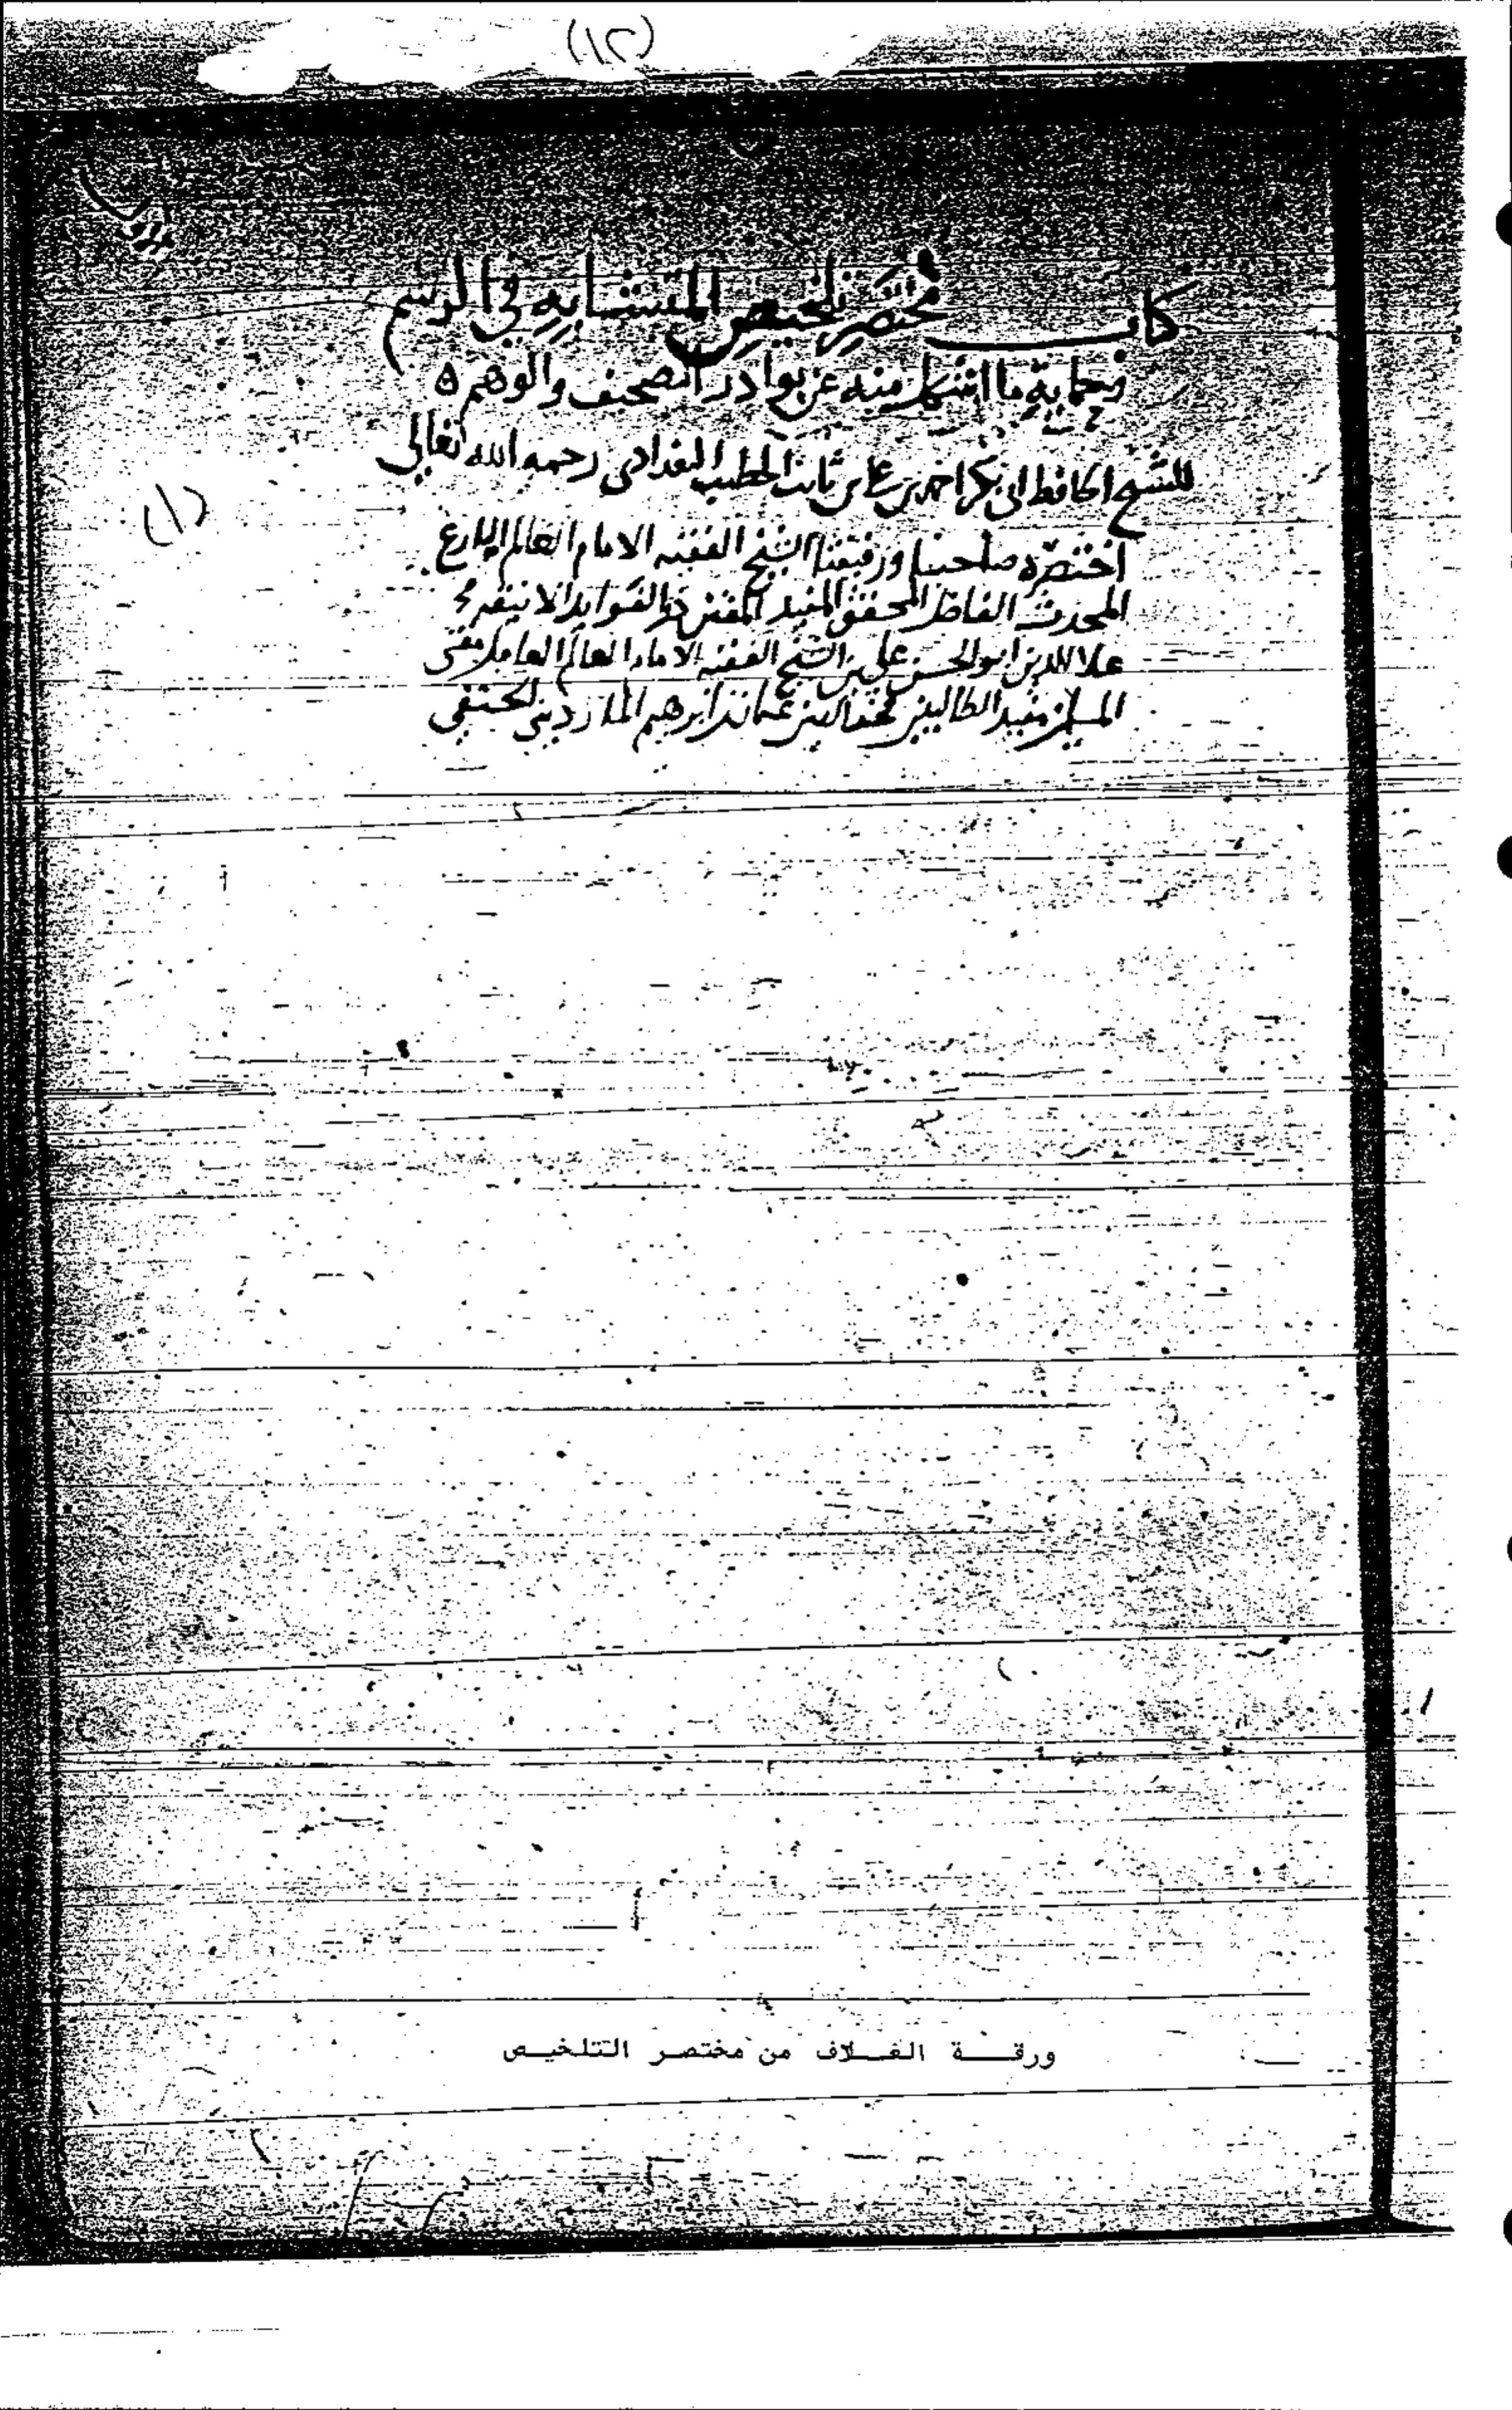 (١٢)
كتاب مختصر تلخيص المتشابه في الرسم
وحماية ما اشكل منه عن بوادر التصحيف والوهم ه
للشيخ الحافظ ابي بكر احمد بن علي بن ثابت الخطيب البغدادي رحمه الله تعالى
(١)
اختصره صاحبنا ورفيقنا الشيخ الفقيه الامام العالم البارع
المحدث الفاضل المحقق المفيد المفنن ذو الفوايد
علا الدين ابو الحسن علي بن الشيخ الفقيه الامام العالم العامل مفتي
المسلمين مفيد الطالبين فخر الدين عثمان بن ابرهيم المارديني الحنفي
ورقة الغلاف من مختصر التلخيص